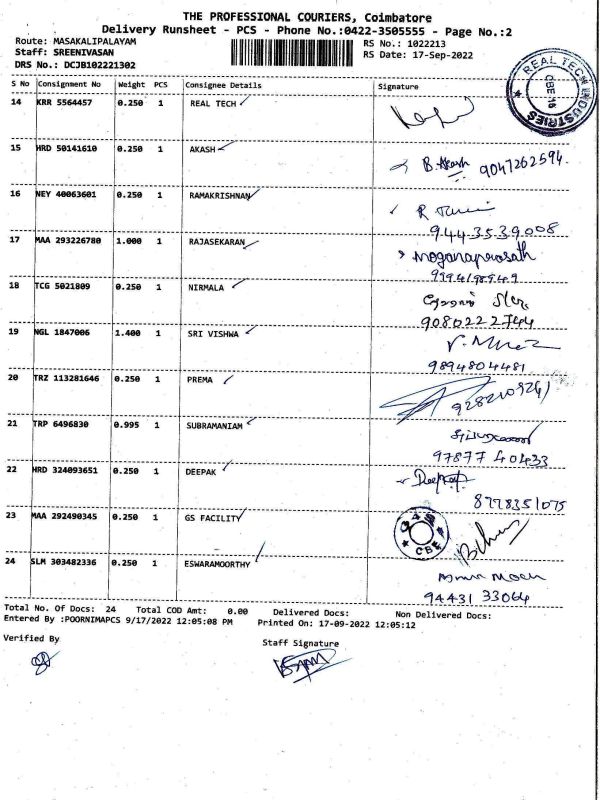 THE PROFESSIONAL COURIERS, Coimbatore
Delivery Runsheet - PCS - Phone No.:0422-3505555 - Page No.:2
Route: MASAKALIPALAYAM RS No.: 1022213
Staff: SREENIVASAN RS Date: 17-Sep-2022
DRS No.: DCJB102221302
REAL TECH INDUSTRIES CBE
S No Consignment No Weight PCS Consignee Details Signature
14 KRR 5564457 0.250 1 REAL TECH
15 HRD 50141610 0.250 1 AKASH
B. Akash 9047262594.
16 NEY 40063601 0.250 1 RAMAKRISHNAN
9443539008
17 MAA 293226780 1.000 1 RAJASEKARAN
Moganaprasath
18 TCG 5021809 0.250 1 NIRMALA
9080222744
19 NGL 1847006 1.400 1 SRI VISHWA
9894804481
20 TRZ 113281646 0.250 1 PREMA
21 TRP 6496830 0.995 1 SUBRAMANIAM
97877 40433
22 HRD 324093651 0.250 1 DEEPAK
Deepak
8778351075
23 MAA 292490345 0.250 1 GS FACILITY
G4S CBE
24 SLM 303482336 0.250 1 ESWARAMOORTHY
94431 33064
Total No. Of Docs: 24 Total COD Amt: 0.00 Delivered Docs: Non Delivered Docs:
Entered By :POORNIMAPCS 9/17/2022 12:05:08 PM Printed On: 17-09-2022 12:05:12
Verified By Staff Signature